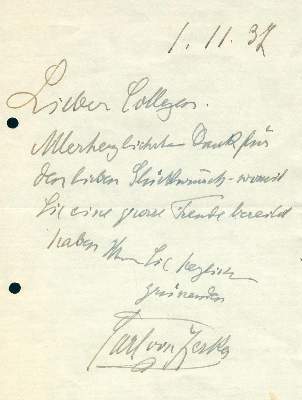 1.11.37
Lieber Collega.
Allerherzlichsten Dank für
den lieben Glückwunsch - womit
Sie eine grosse Freude bereitet
haben Ihr Sie herzlich
grüssender
Carl von